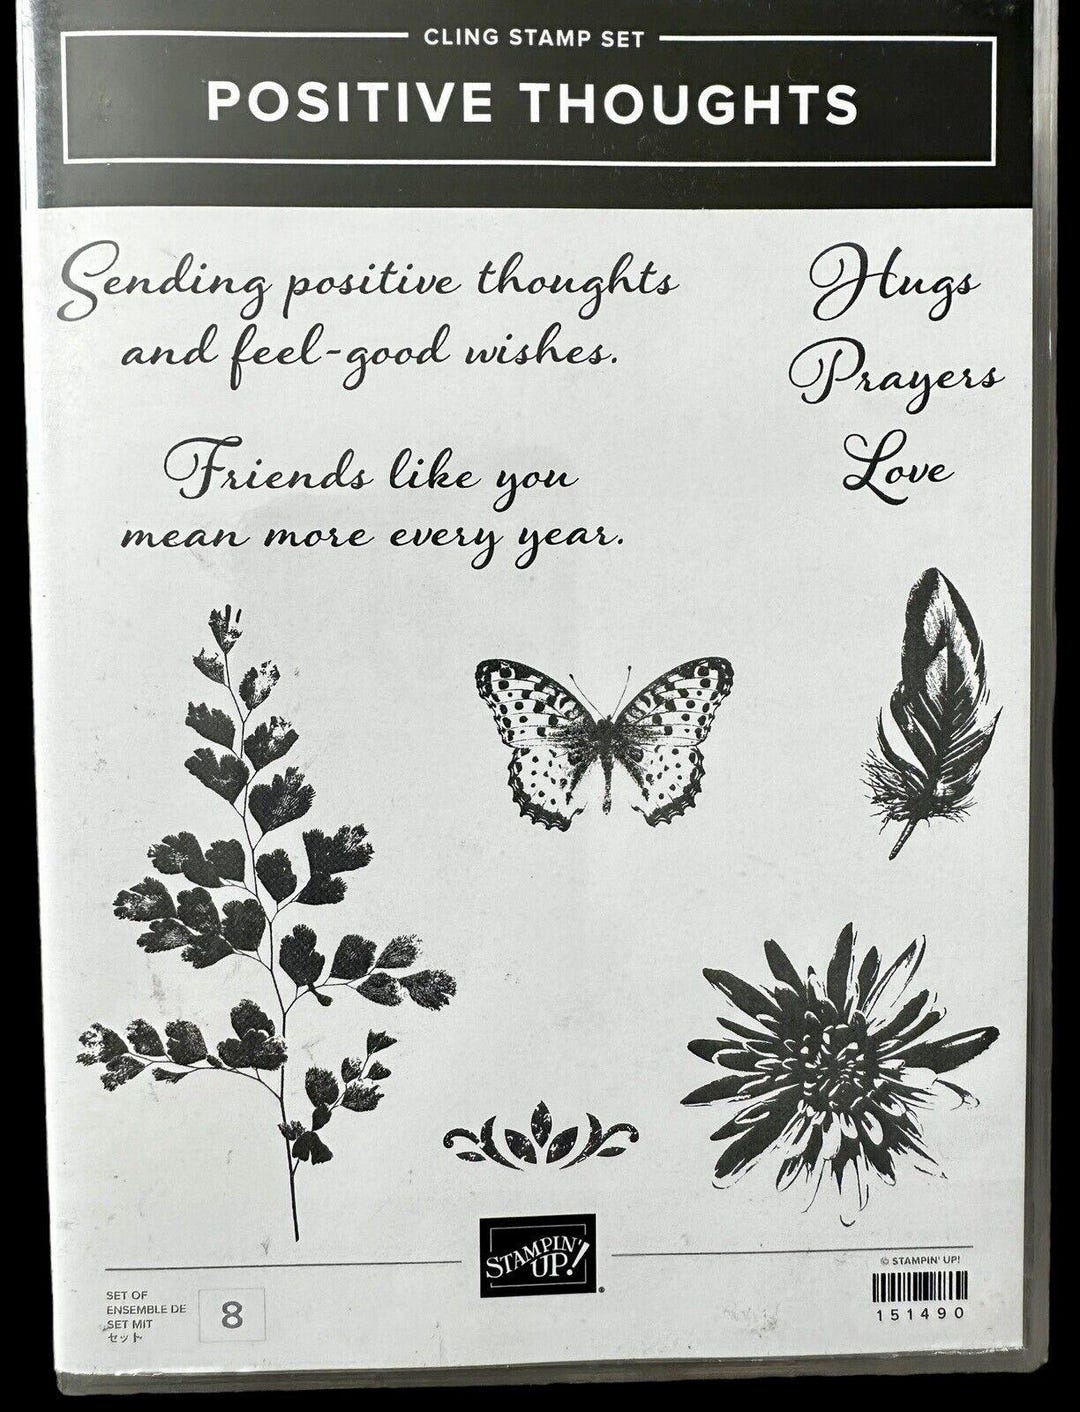 CLING STAMP SET
POSITIVE THOUGHTS
Sending positive thoughts
and feel-good wishes.
Friends like you
mean more every year.
Hugs
Prayers
Love
STAMPIN'
UP!®
SET OF
ENSEMBLE DE
SET MIT
セット
8
© STAMPIN' UP!
151490